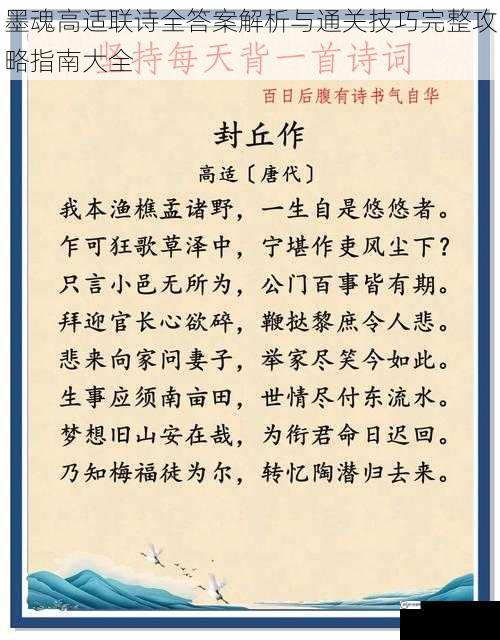 墨魂高适联诗全答案解析与通关技巧完整攻
略指南大全
坚持每天背一首诗词
百日后腹有诗书气自华
封丘作
高适〔唐代〕
我本渔樵孟诸野，一生自是悠悠者。
乍可狂歌草泽中，宁堪作吏风尘下？
只言小邑无所为，公门百事皆有期。
拜迎官长心欲碎，鞭挞黎庶令人悲。
悲来向家问妻子，举家尽笑今如此。
生事应须南亩田，世情尽付东流水。
梦想旧山安在哉，为衔君命日迟回。
乃知梅福徒为尔，转忆陶潜归去来。